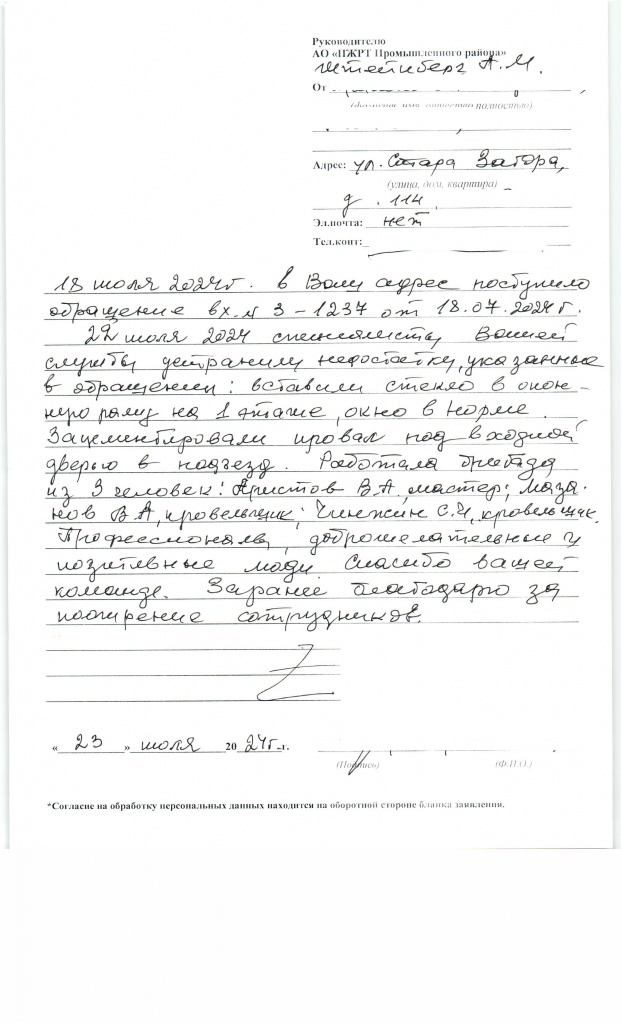 Руководителю
АО «ПЖРТ Промышленного района»
Штейнберг А.М.
От
(фамилия, имя, отчество полностью)
Адрес: ул. Стара Загора,
(улица, дом, квартира)
д. 114
Эл.почта: нет
Тел.конт:
18 июля 2024г. в Ваш адрес поступило
обращение вх.№ 3-1237 от 18.07.2024г.
22 июля 2024 специалисты Вашей
службы устранили недостатки, указанные
в обращении: вставили стекло в окон-
ную раму на 1 этаже, окно в норме.
Зацементировали провал под входной
дверью в подъезд. Работала бригада
из 3 человек: Аристов В.А, мастер; Маза-
нов В.А, кровельщик; Чинжин С.Н, кровельщик.
Профессионалы, доброжелательные и
позитивные люди Спасибо вашей
команде. Заранее благодарю за
поощрение сотрудников.
« 23 » июля 20 24г.г.
(Подпись) (Ф.И.О.)
*Согласие на обработку персональных данных находится на оборотной стороне бланка заявления.